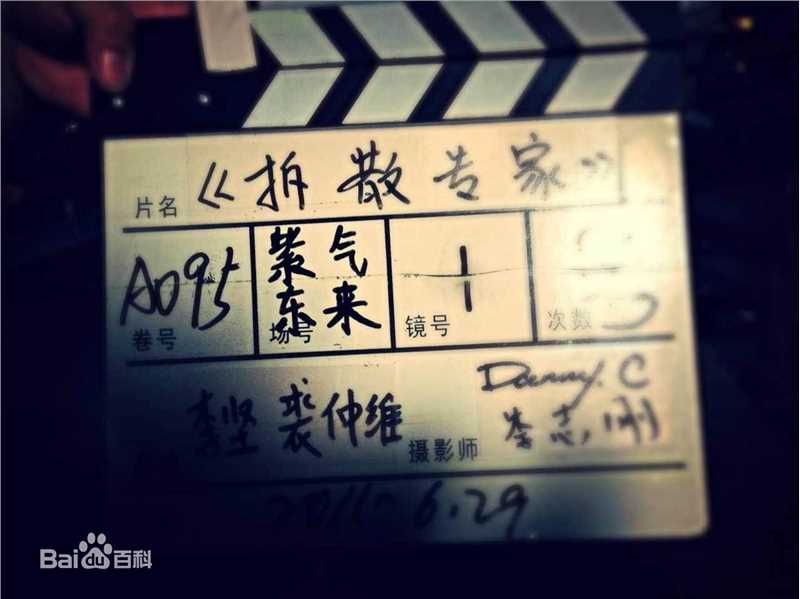 片名 《拆散专家》
A095 紫气
东来
卷号 场号 镜号 1 次数
李坚 裘仲维 Danny.C
摄影师 李志刚
6.29
Bai du 百科